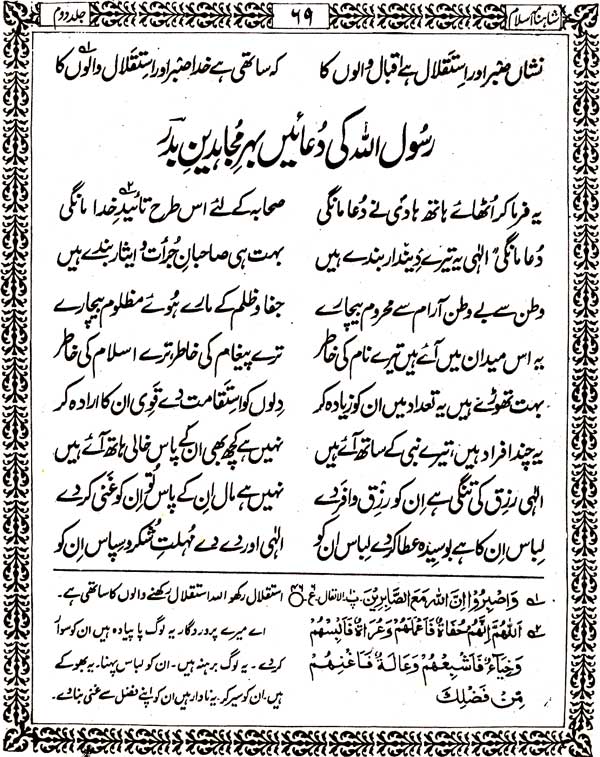 شاہنامہ اسلام ۶۹ جلد دوم
نشاں صبر اور استقلال ہے اقبال والوں کا کہ ساتھی ہے خدا صبر اور استقلال والوں کا ؎۱
رسول اللہ کی دُعائیں بہرِ مجاہدینِ بدر
یہ فرما کر اُٹھائے ہاتھ ہادیؐ نے دُعا مانگی صحابہ کے لئے اس طرح تائیدِ خدا مانگی ؎۲
دُعا مانگی الٰہی یہ تیرے دیندار بندے ہیں بہت ہی صاحبانِ جرأت و ایثار بندے ہیں
وطن سے بے وطن آرام سے محروم بیچارے جفا و ظلم کے مارے ہُوئے مظلوم بیچارے
یہ اس میدان میں آئے ہیں تیرے نام کی خاطر ترے پیغام کی خاطر، ترے اسلام کی خاطر
بہت تھوڑے ہیں یہ تعداد میں ان کو زیادہ کر دِلوں کو استقامت دے قوی ان کا ارادہ کر
یہ چند افراد ہیں، تیرے نبی کے ساتھ آئے ہیں نہیں ہے کچھ بھی ان کے پاس خالی ہاتھ آئے ہیں
الٰہی رزق کی تنگی ہے اِن کو رزقِ وافر دے نہیں ہے مال اِن کے پاس تُو اِن کو غنی کر دے
لباس اِن کا ہے بوسیدہ عطا کر دے لباس اِن کو الٰہی اور دے دے مُہلتِ شکر و سپاس اِن کو
؎۱ وَاصْبِرُوْا اِنَّ اللّٰهَ مَعَ الصَّابِرِيْنَ۔ پ الانفال ع استقلال رکھو اللہ استقلال رکھنے والوں کا ساتھی ہے۔
؎۲ اَللّٰهُمَّ اِنَّهُمْ حُفَاةٌ فَاحْمِلْهُمْ وَعُرَاةٌ فَاكْسِهِمْ اے میرے پروردگار یہ لوگ پا پیادہ ہیں ان کو سوار
وَجِيَاعٌ فَاَشْبِعْهُمْ وَعَالَةٌ فَاَغْنِهِمْ کر دے۔ یہ لوگ برہنہ ہیں۔ ان کو لباس پہنا۔ یہ بھوکے
مِنْ فَضْلِكَ ہیں۔ ان کو سیر کر۔ یہ نادار ہیں ان کو اپنے فضل سے غنی بنا دے۔